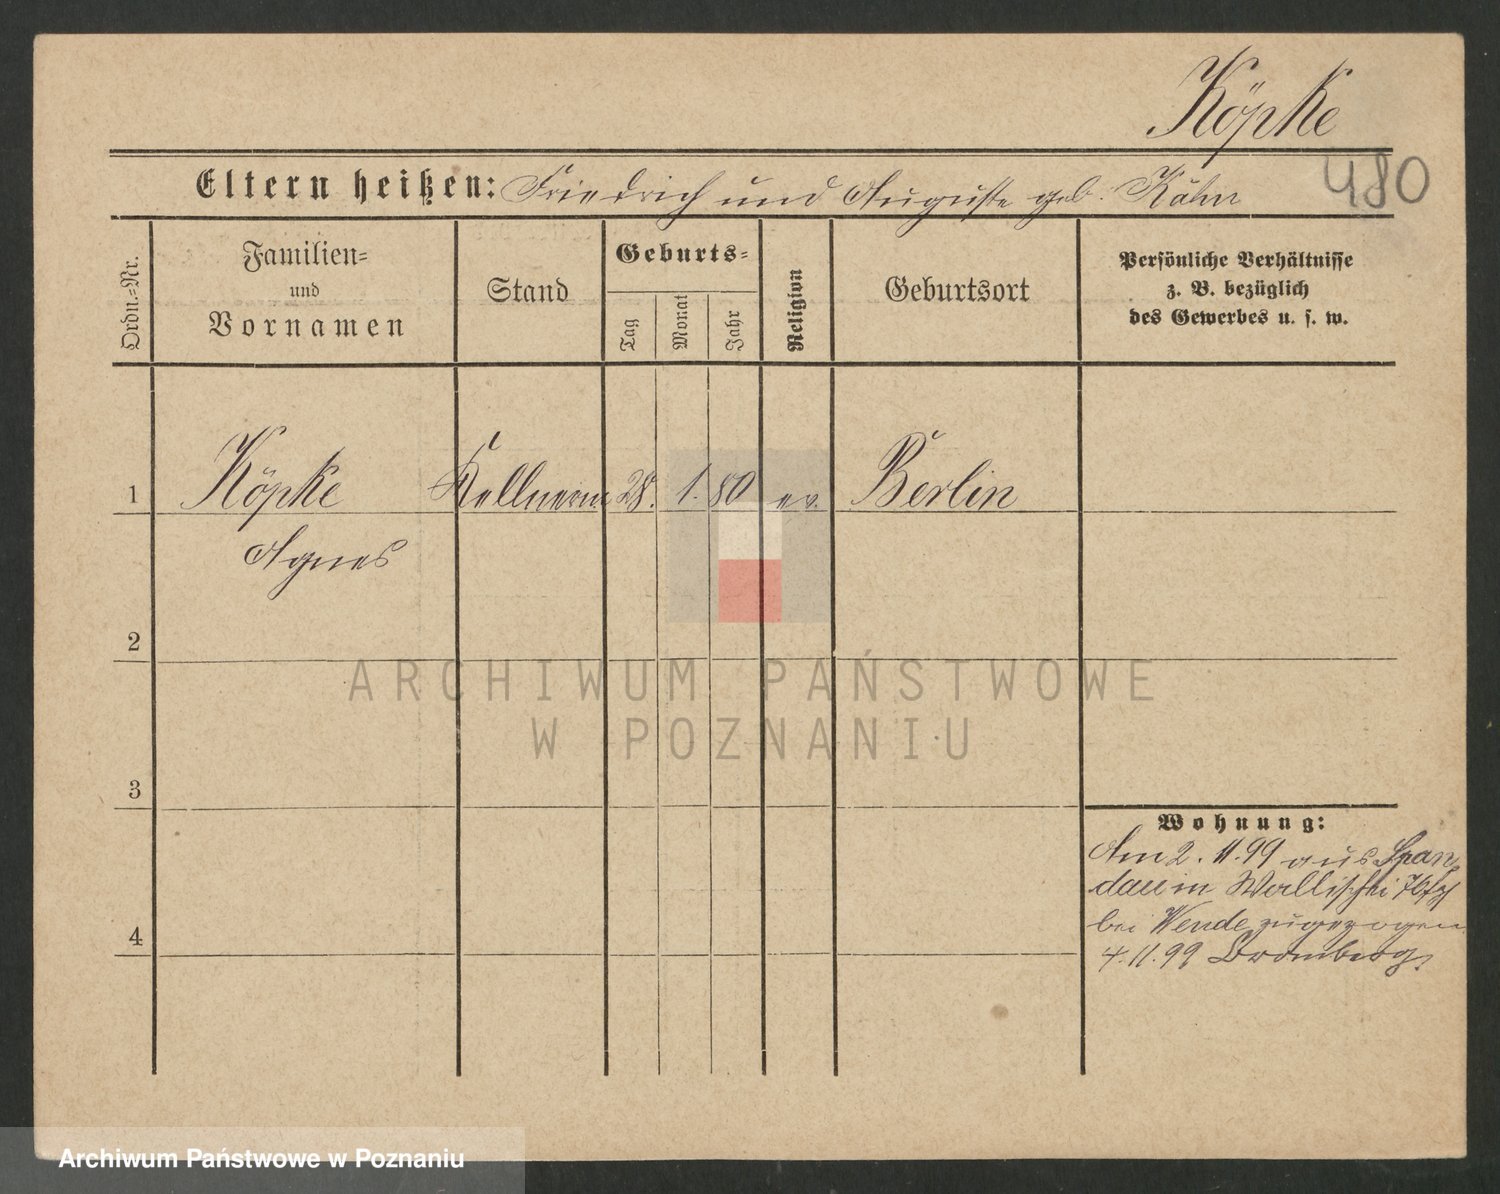 Köpke
480
Eltern heißen: Friedrich und Auguste geb. Kühn
Ordn.-Nr.
Familien-
und
Vornamen
Stand
Geburts-
Tag
Monat
Jahr
Religion
Geburtsort
Persönliche Verhältnisse
z. B. bezüglich
des Gewerbes u. s. w.
1 Köpke Kellnerin 28. 1. 80 ev. Berlin
Agnes
2
3
4
ARCHIWUM PAŃSTWOWE
W POZNANIU
Wohnung:
Am 2. 11. 99 aus Span
dau in Wallischei
bei Wende zugezogen
4. 11. 99 Bromberg.
Archiwum Państwowe w Poznaniu